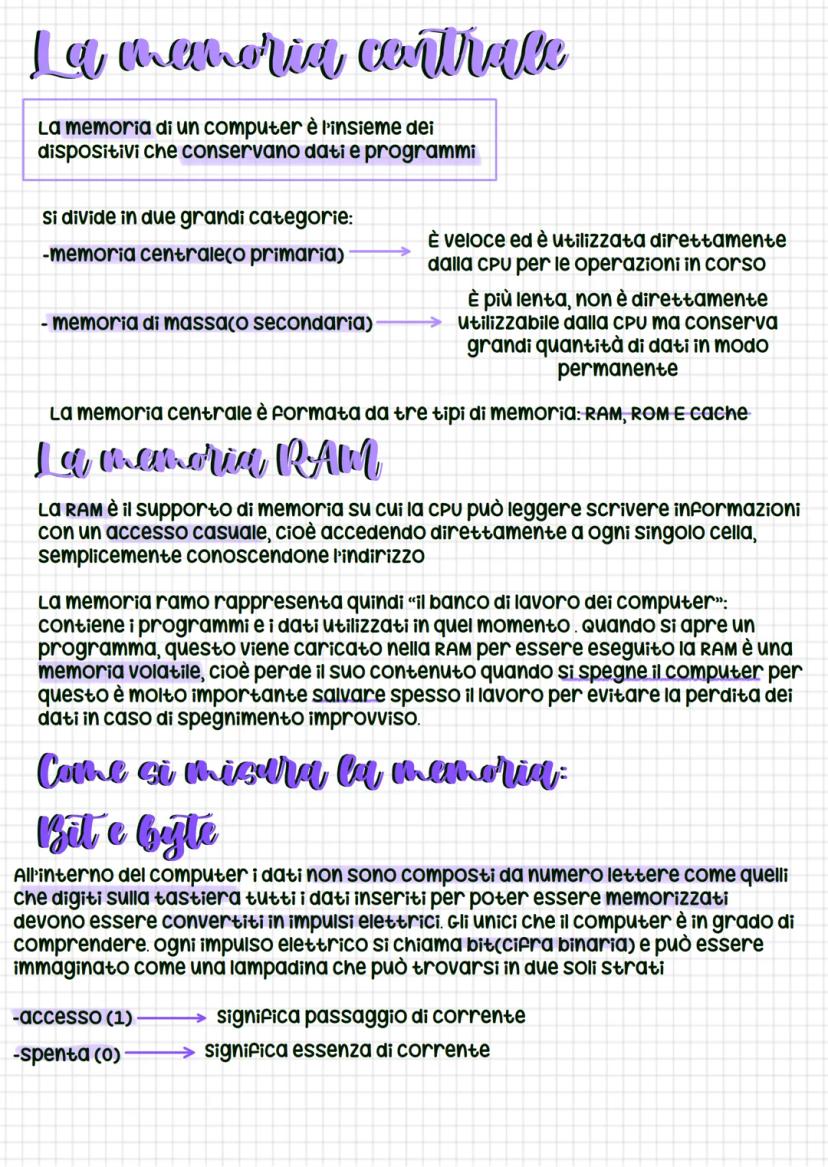 La memoria centrale
La memoria di un computer è l'insieme dei
dispositivi che conservano dati e programmi
si divide in due grandi categorie:
-memoria centrale(o primaria)
È veloce ed è utilizzata direttamente
dalla CPU per le operazioni in corso
- memoria di massa(o secondaria)
È più lenta, non è direttamente
utilizzabile dalla CPU ma conserva
grandi quantità di dati in modo
permanente
La memoria centrale è formata da tre tipi di memoria: RAM, ROM E cache
La memoria RAM
La RAM è il supporto di memoria su cui la CPU può leggere scrivere informazioni
con un accesso casuale, cioè accedendo direttamente a ogni singolo cella,
semplicemente conoscendone l'indirizzo
La memoria ramo rappresenta quindi “il banco di lavoro dei computer”:
contiene i programmi e i dati utilizzati in quel momento . Quando si apre un
programma, questo viene caricato nella RAM per essere eseguito la RAM è una
memoria volatile, cioè perde il suo contenuto quando si spegne il computer per
questo è molto importante salvare spesso il lavoro per evitare la perdita dei
dati in caso di spegnimento improvviso.
Come si misura la memoria:
Bit e byte
All'interno del computer i dati non sono composti da numero lettere come quelli
che digiti sulla tastiera tutti i dati inseriti per poter essere memorizzati
devono essere convertiti in impulsi elettrici. Gli unici che il computer è in grado di
comprendere. ogni impulso elettrico si chiama bit(cifra binaria) e può essere
immaginato come una lampadina che può trovarsi in due soli strati
-accesso (1)
significa passaggio di corrente
-spenta (0)
significa essenza di corrente